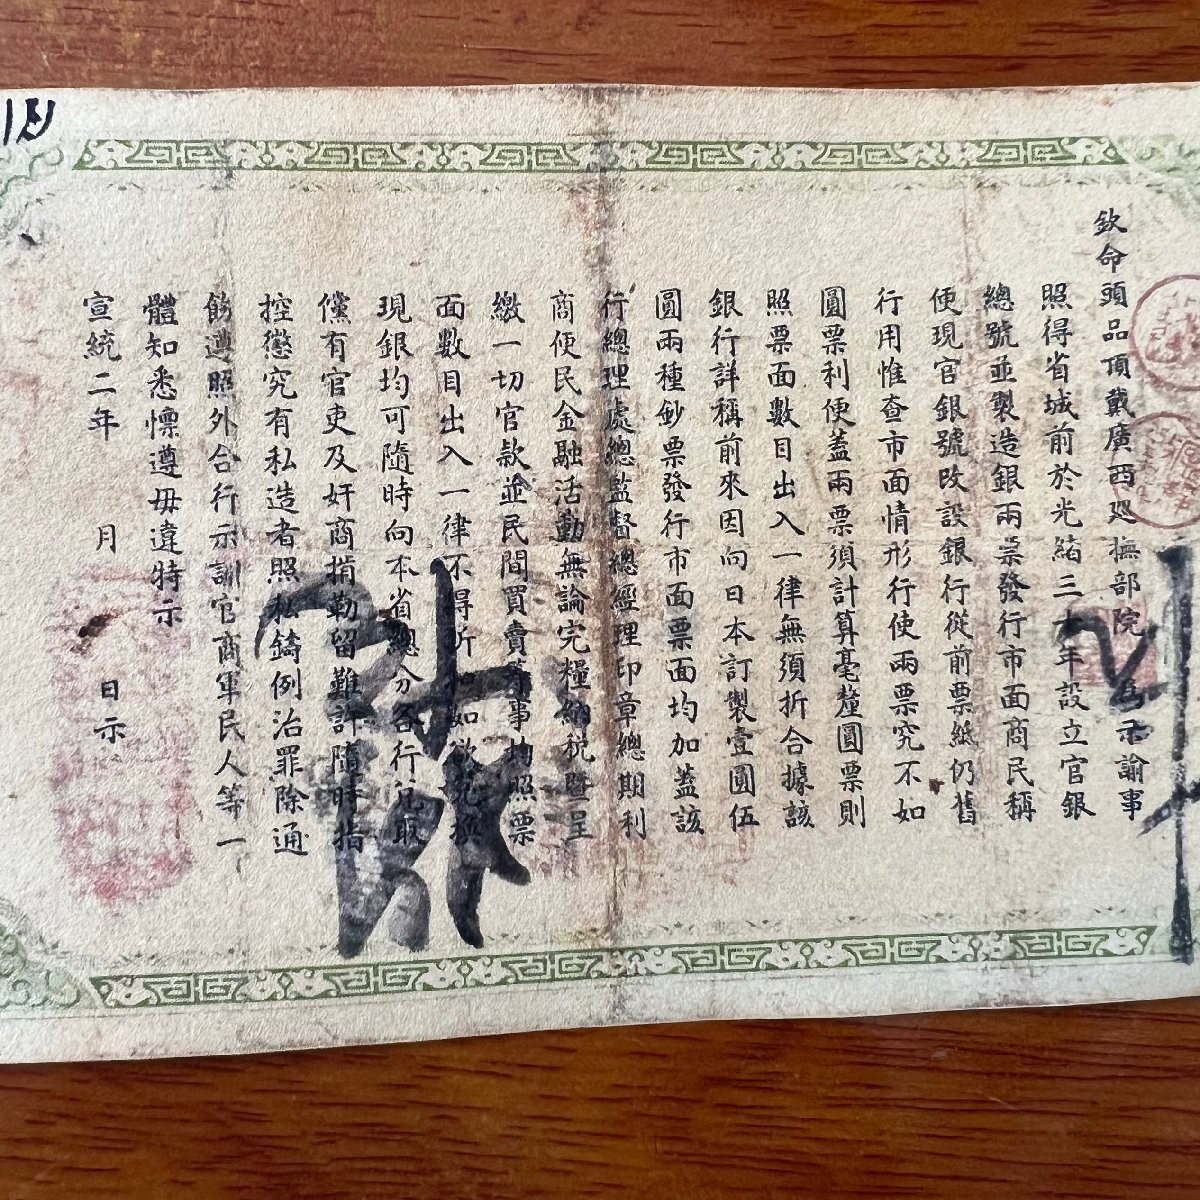 欽命頭品頂戴廣西廵撫部院為示諭事
照得省城前於光緒三十年設立官銀
總號並製造銀兩票發行市面商民稱
便現官銀號改設銀行從前票紙仍舊
行用惟查市面情形行使兩票究不如
圓票利便蓋兩票須計算毫釐圓票則
照票面數目出入一律無須折合據該
銀行詳稱前來因向日本訂製壹圓伍
圓兩種鈔票發行市面票面均加蓋該
行總理處總監督總經理印章總期利
商便民金融活動無論完糧納稅暨呈
繳一切官款並民間買賣等事均照票
面數目出入一律不得折 如欲兌換
現銀均可隨時向本省總分各行兌取
儻有官吏及奸商揹勒留難許隨時指
控懲究有私造者照私鑄例治罪除通
飭遵照外合行示訓官商軍民人等一
體知悉懔遵毋違特示
宣統二年 月 日示